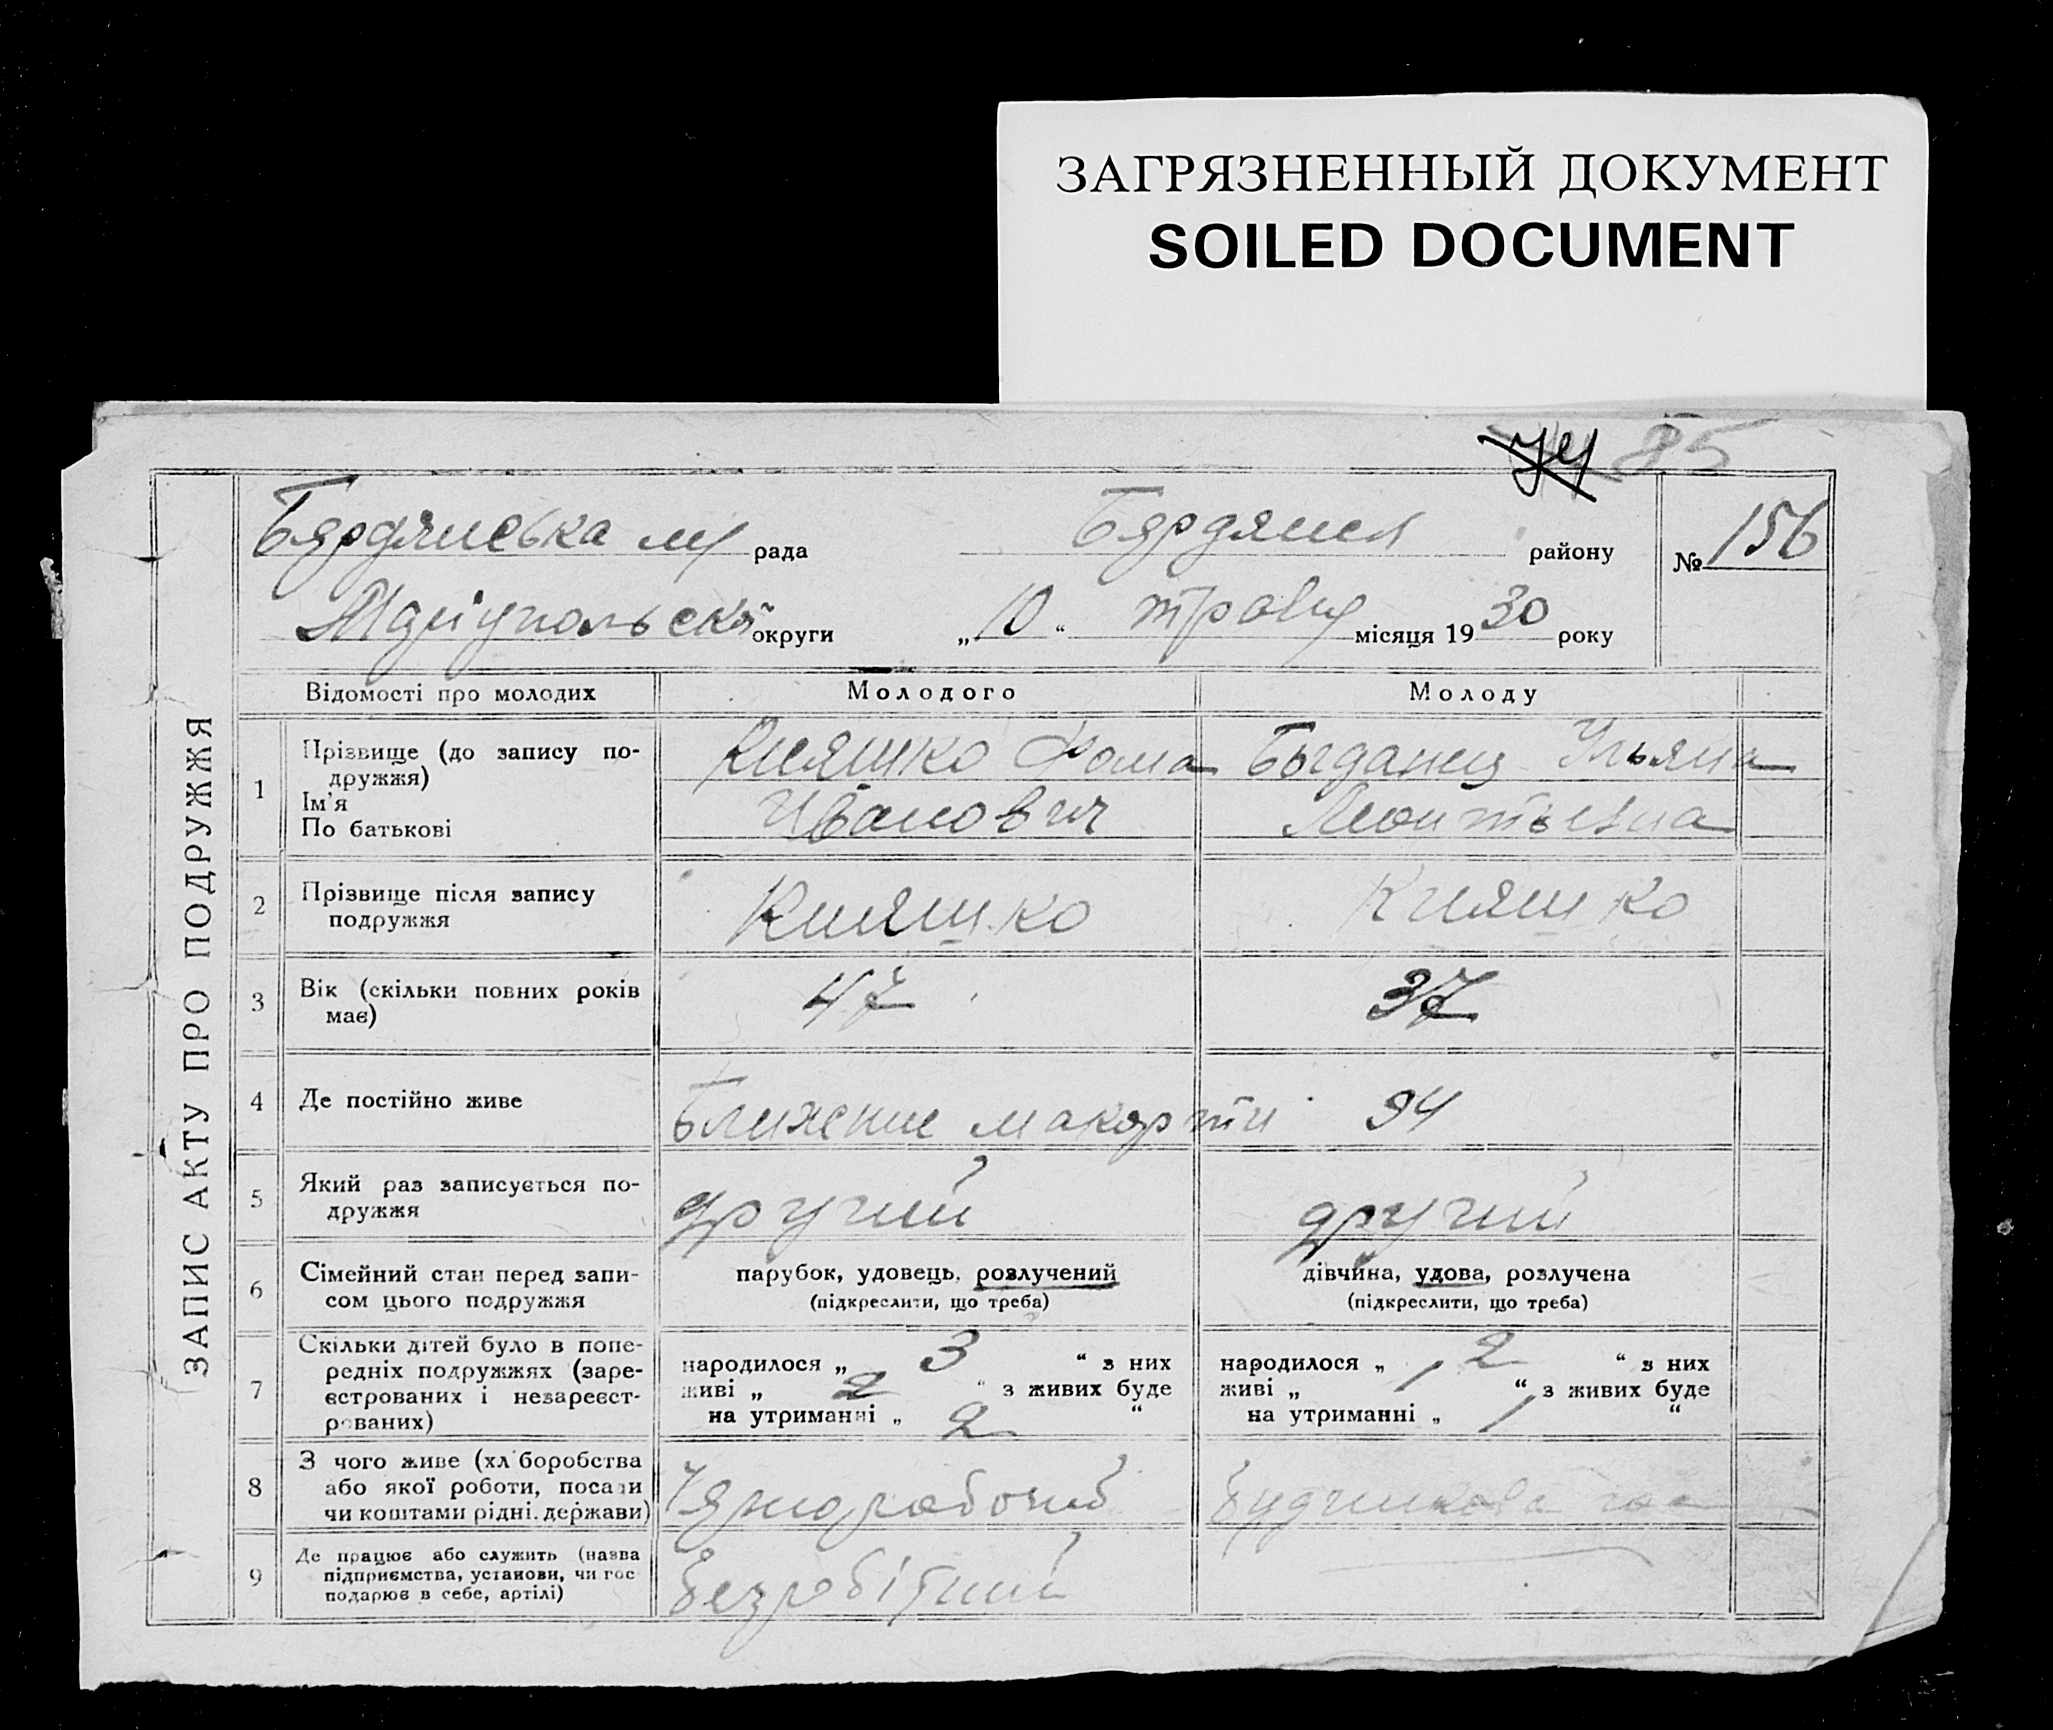 ЗАГРЯЗНЕННЫЙ ДОКУМЕНТ
SOILED DOCUMENT
85
ЗАПИС АКТУ ПРО ПОДРУЖЖЯ
Бярдянська м рада Бярдянск району № 156
округи „10“ травня місяця 1930 року
Відомості про молодих Молодого Молоду
1 Прізвище (до запису по-
дружжя)
Ім'я
По батькові
Кияшко Фома
Иванович
Ульяна
Леонтьевна
2 Прізвище після запису
подружжя
Кияшко Кияшко
3 Вік (скільки повних років
має)
47 37
4 Де постійно живе
94
5 Який раз записується по-
дружжя
другий другий
6 Сімейний стан перед запи-
сом цього подружжя
парубок, удовець, розлучений
(підкреслити, що треба)
дівчина, удова, розлучена
(підкреслити, що треба)
7 Скільки дітей було в попе-
редніх подружжях (заре-
єстрованих і незареєст-
рованих)
народилося „ 3 “ з них
живі „ 2 “ з живих буде
на утриманні „ 2 “
народилося „ 2 “ з них
живі „ 1 “ з живих буде
на утриманні „ 1 “
8 З чого живе (хліборобства
або якої роботи, посади
чи коштами рідні. держави)
Чернорабочий
9 Де працює або служить (назва
підприємства, установи, чи гос
подарює в себе, артілі)
Безробітний